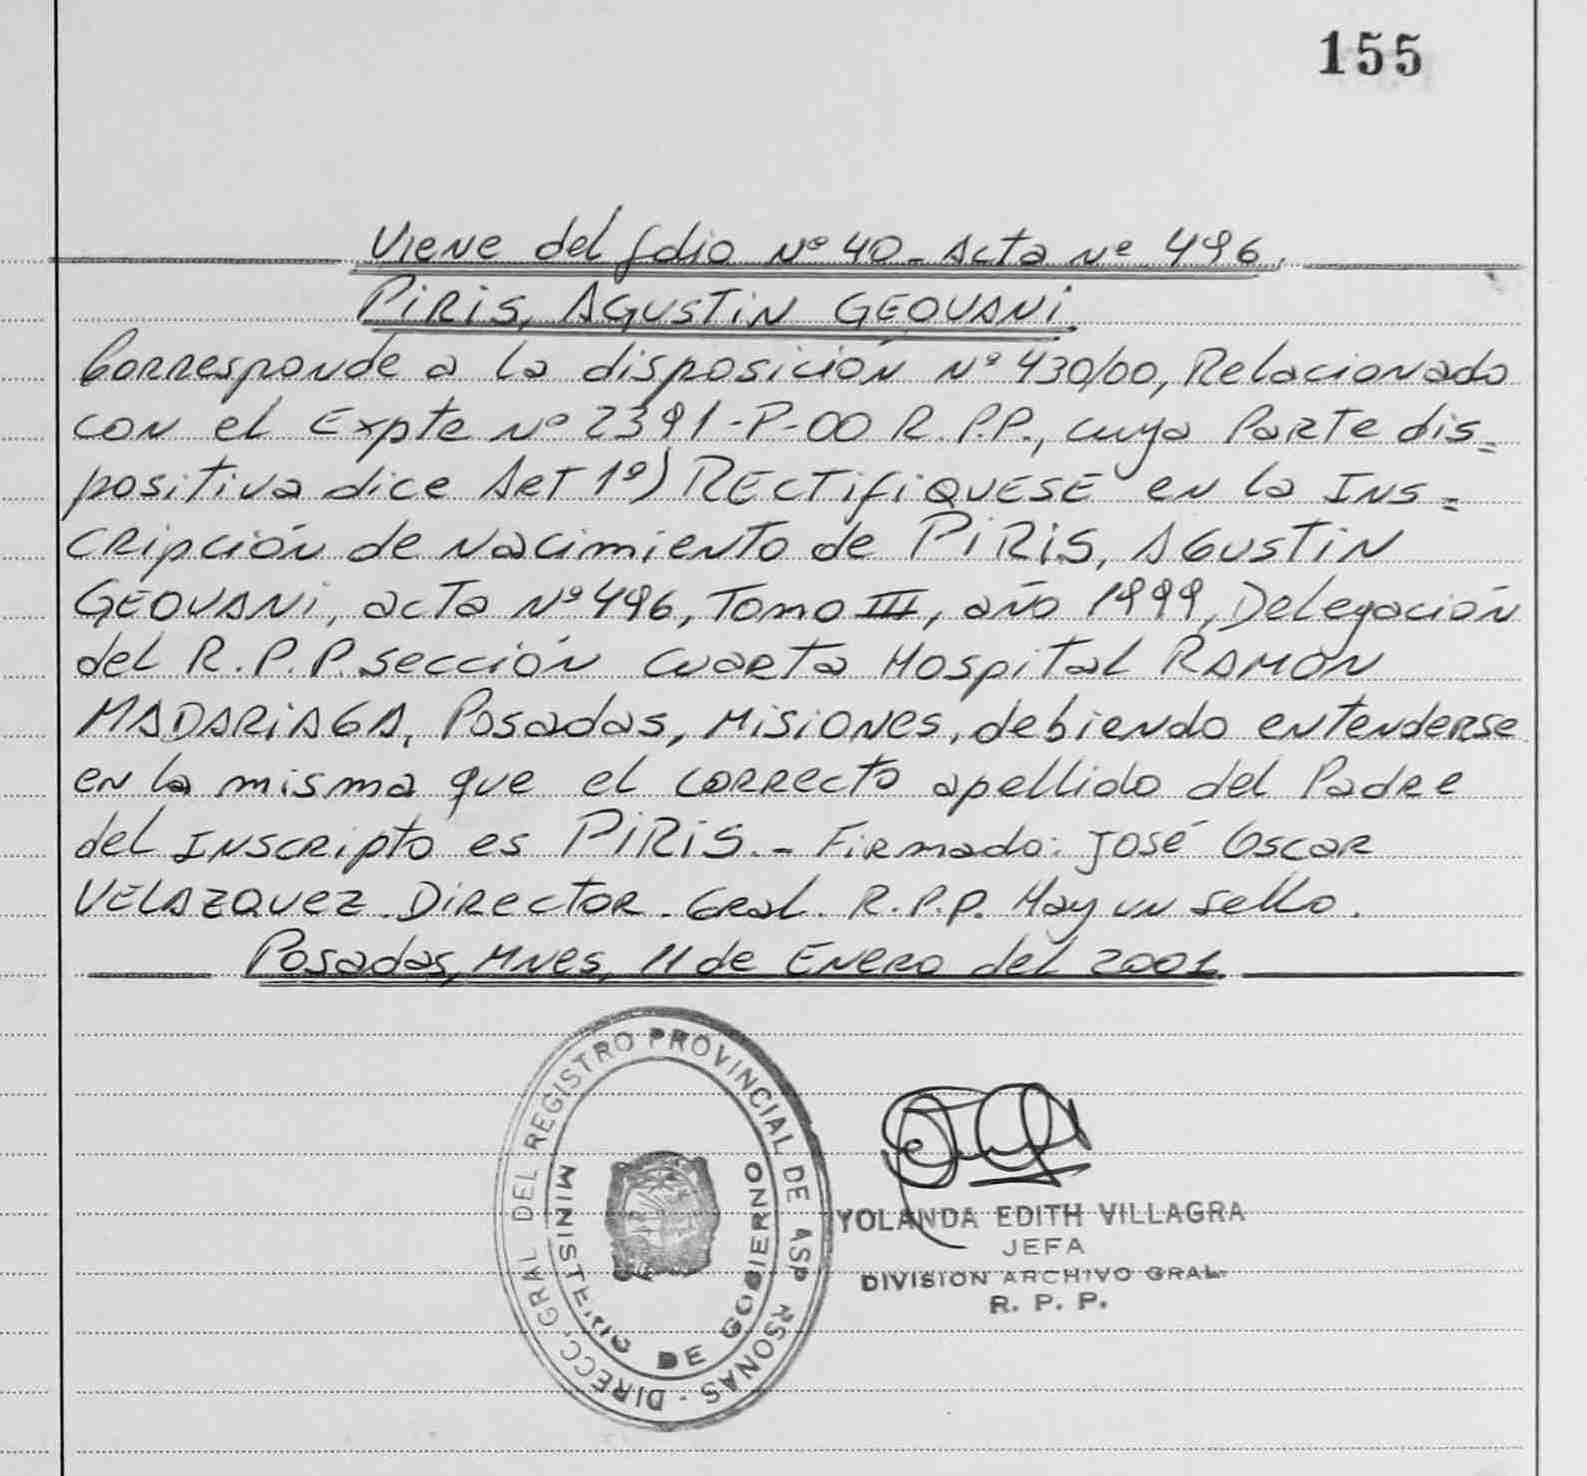 155
Viene del folio Nº 40 - Acta Nº 496.
PIRIS, AGUSTIN GEOVANI
Corresponde a la disposición Nº 430/00, Relacionado
con el Expte Nº 2391-P-00 R.P.P., cuya Parte dis=
positiva dice Art 1º) RECTIFIQUESE en la Ins=
cripción de Nacimiento de PIRIS, AGUSTIN
GEOVANI, acta Nº 496, Tomo III, año 1999, Delegación
del R.P.P. sección Cuarta Hospital RAMÓN
MADARIAGA, Posadas, Misiones, debiendo entenderse
en la misma que el correcto apellido del Padre
del Inscripto es PIRIS.- Firmado: José Oscar
VELAZQUEZ. Director. Gral. R.P.P. Hay un sello.
Posadas, Mnes, 11 de Enero del 2001
DIRECC. GRAL DEL REGISTRO PROVINCIAL DE
RSONAS -
MINISTERIO DE GOBIERNO
YOLANDA EDITH VILLAGRA
JEFA
DIVISION ARCHIVO GRAL.
R. P. P.